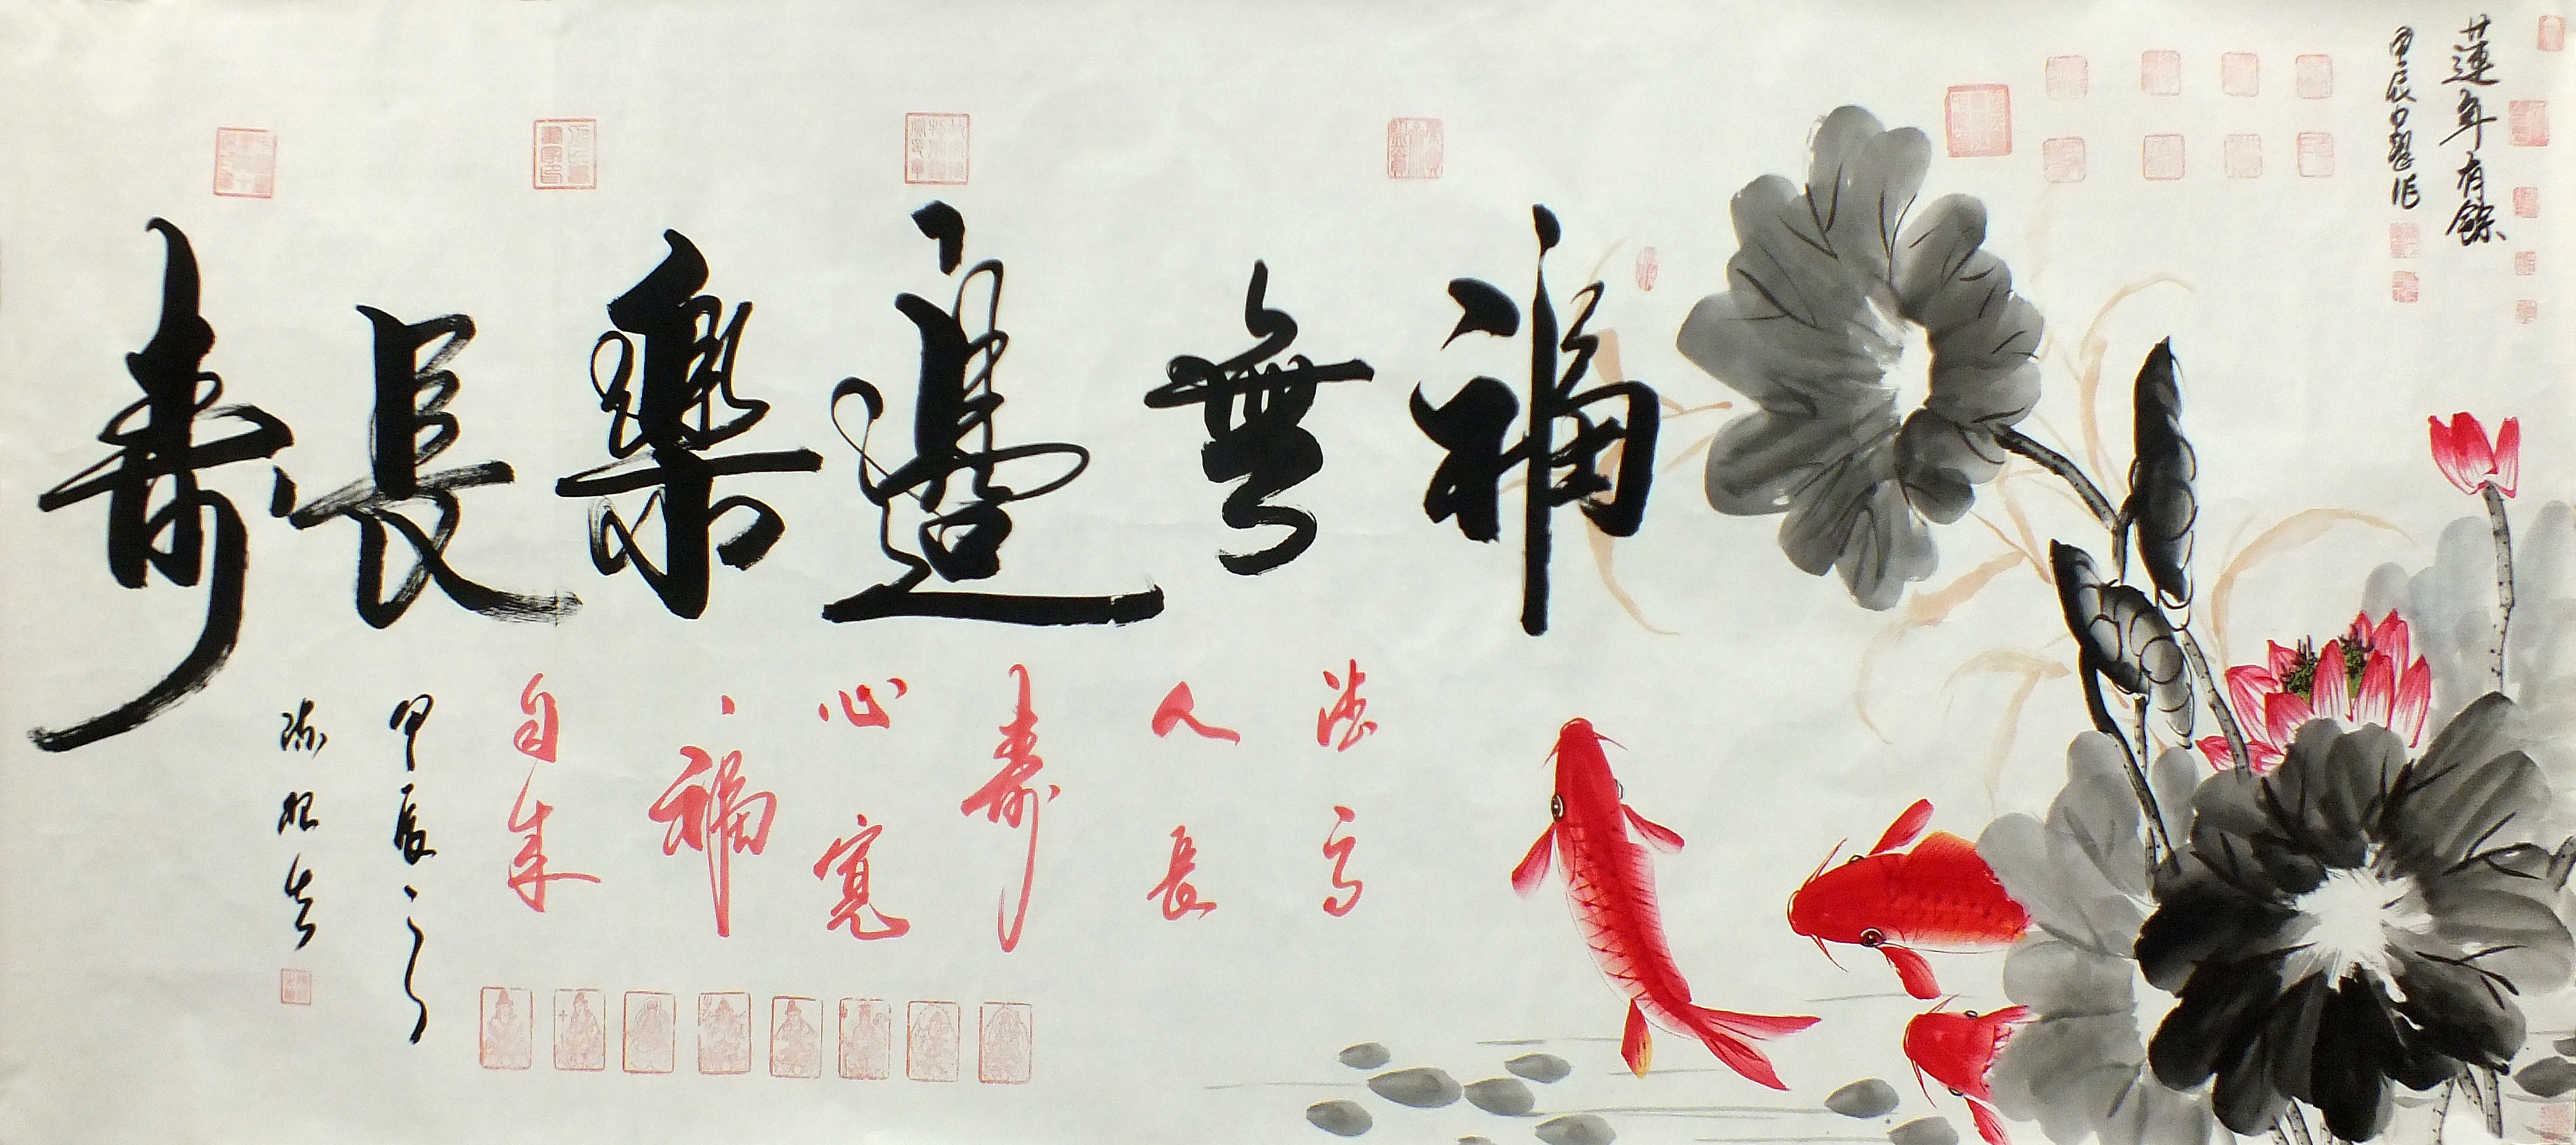 蓮年有餘
甲辰
福無邊樂長壽
德高
人長
壽
心寬
福
自來
甲辰之